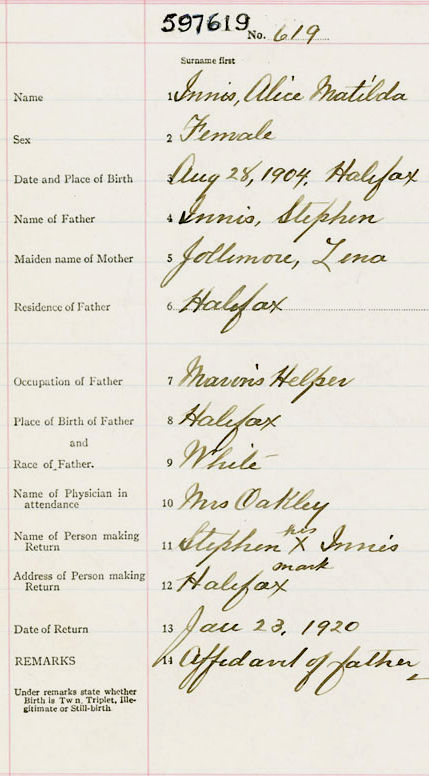 597619 No. 619
Surname first
Name 1 Innis, Alice Matilda
Sex 2 Female
Date and Place of Birth 3 Aug 28, 1904. Halifax
Name of Father 4 Innis, Stephen
Maiden name of Mother 5 Jollimore, Lena
Residence of Father 6 Halifax
Occupation of Father 7 Mason's Helper
Place of Birth of Father 8 Halifax
and
Race of Father. 9 White
Name of Physician in
attendance 10 Mrs Oakley
Name of Person making
Return 11 Stephen his X mark Innis
Address of Person making
Return 12 Halifax
Date of Return 13 Jan 23, 1920
REMARKS 14 Affidavit of father
Under remarks state whether
Birth is Twn, Triplet, Ille-
gitimate or Still-birth.